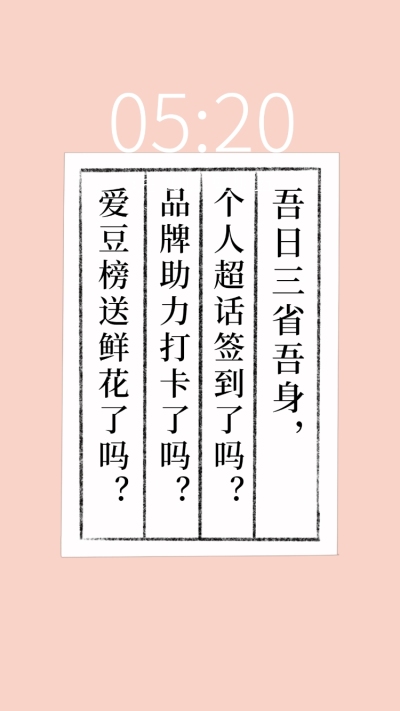 05:20
吾日三省吾身，
个人超话签到了吗？
品牌助力打卡了吗？
爱豆榜送鲜花了吗？